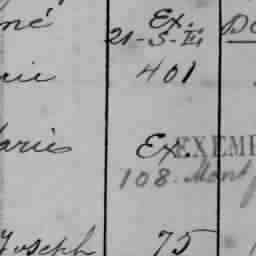 né Ex.
21-S-III
rie 401
arie Ex. EXEMP
108. Mont
Joseph 75